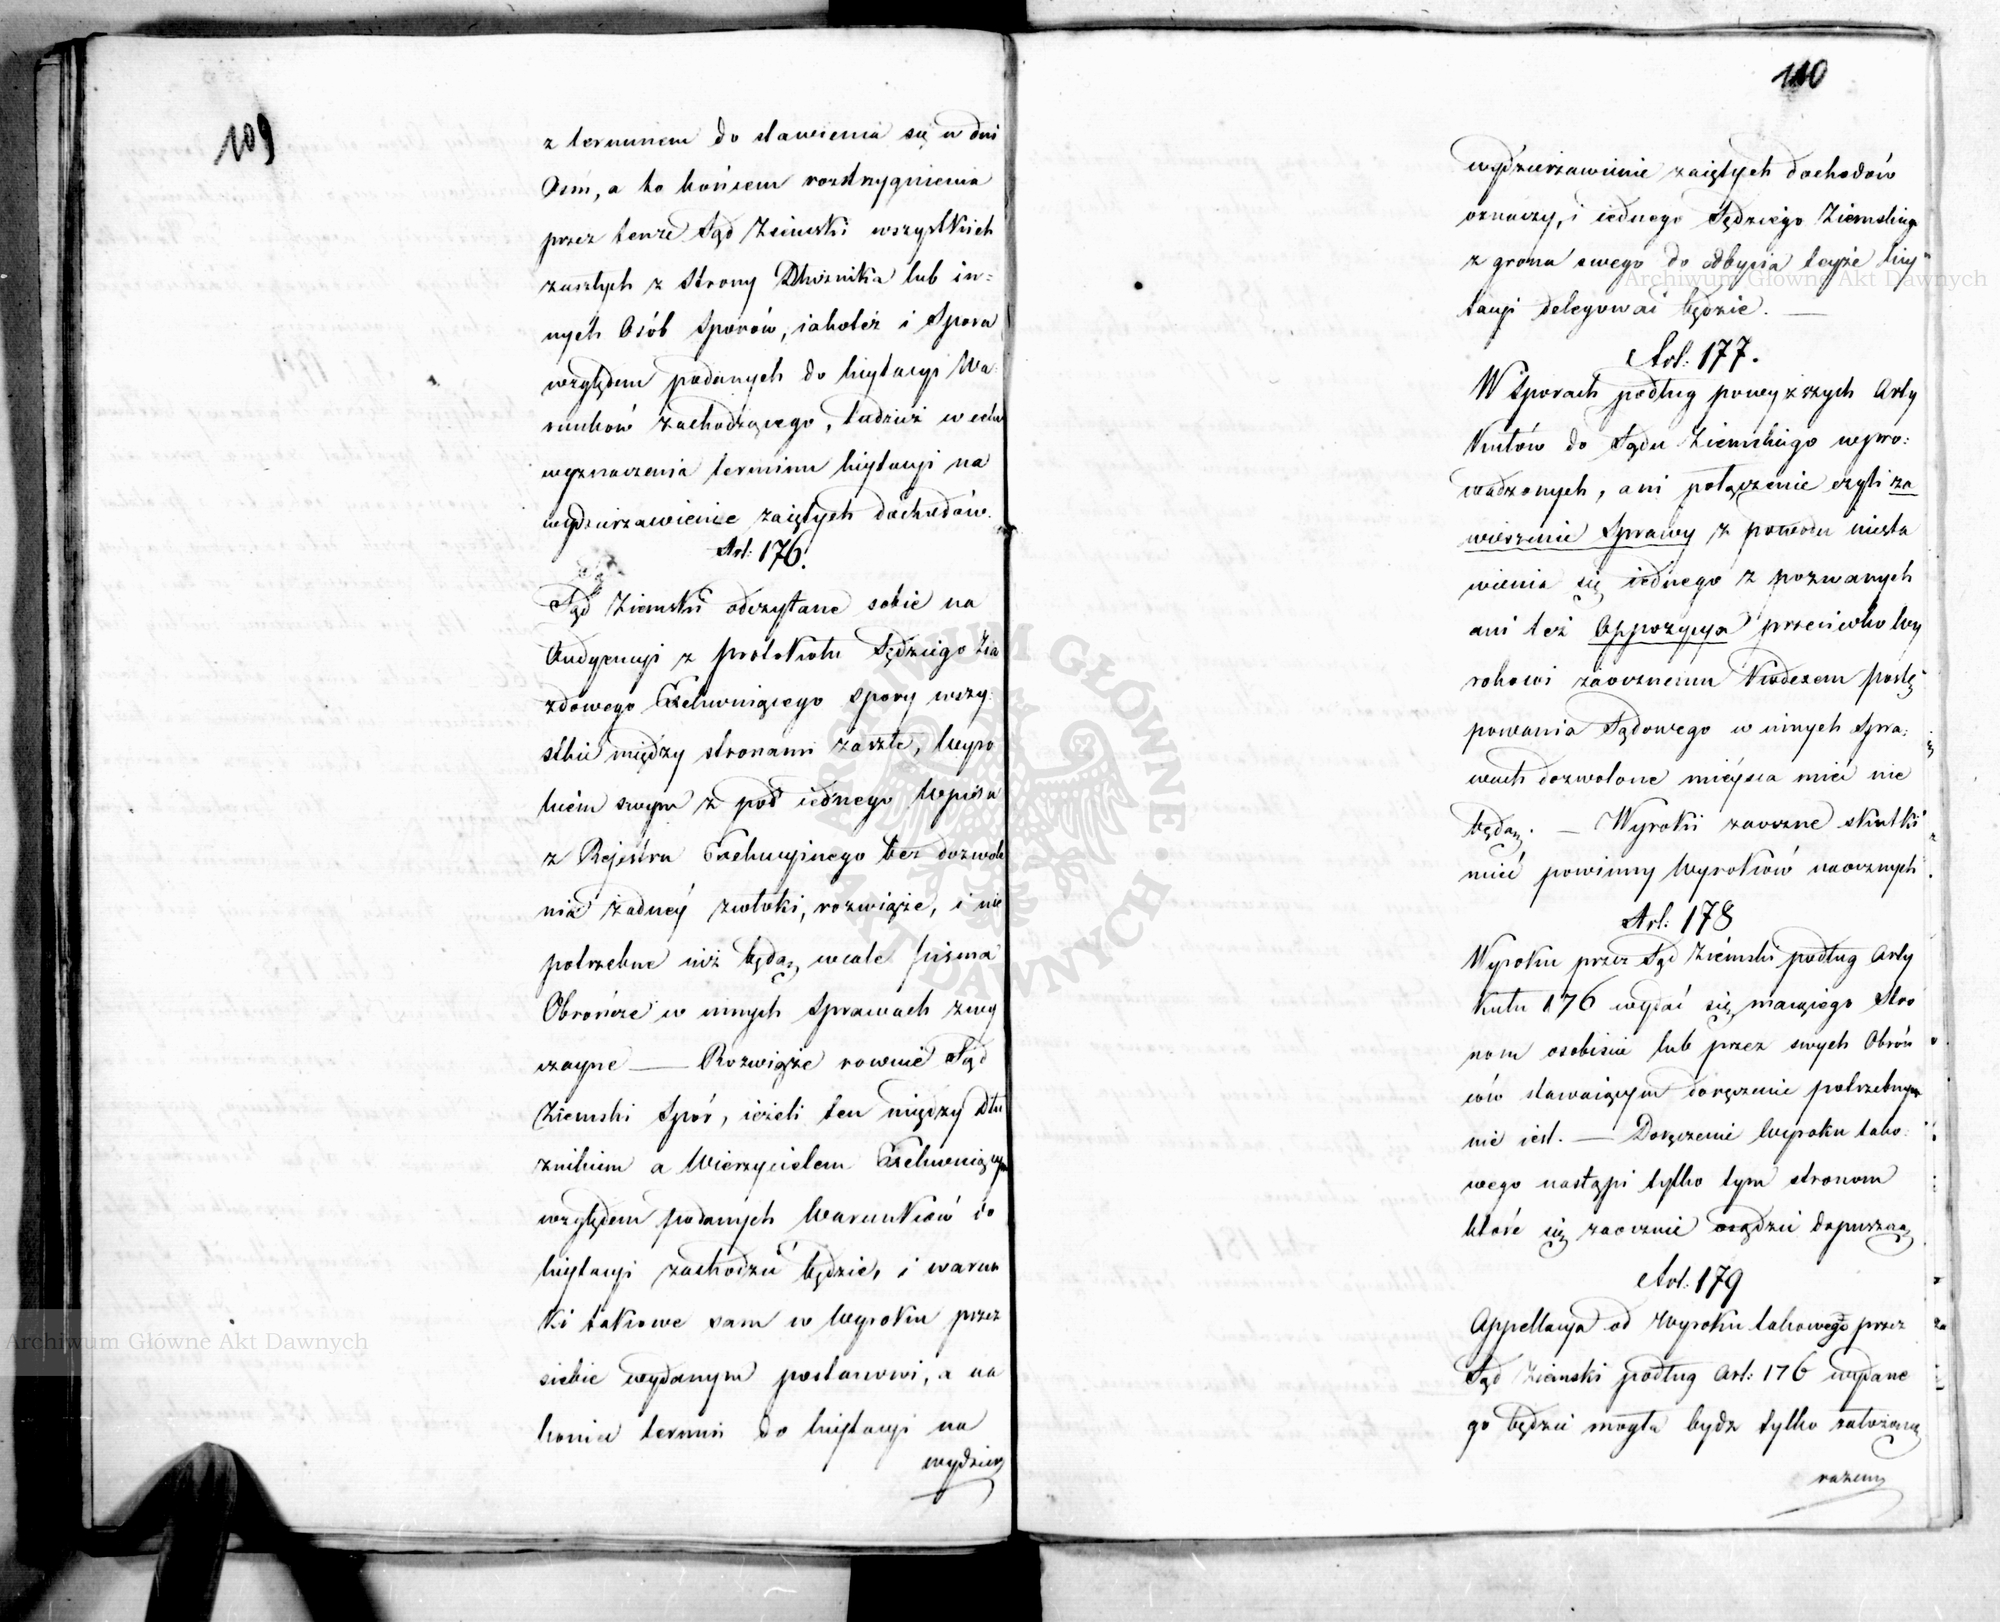 109
z terminem do stawienia się w dni
Osm, a to końcem rozstrzygnienia
przez tenże Sąd Ziemski wszystkich
zaszłych z strony Dłużnika lub in=
nych Osób Sporów, iakoteż i Sporu
względem podanych do licytacyi Wa:
runków zachodzącego, tudzież w celu
wyznaczenia terminu licytacyi na
wydzierzawienie zaiętych dochodów.
Art: 176.
Sąd Ziemski odczytane sobie na
Audyencyi z protokółu Sędziego Zia
zdowego Exekwuiącego spory wszy:
stkie między stronami zaszłe, Wyro
kiem swym z pod iednego Wpisu
z Rejestru Exekucyinego bez dozwole
nia żadney zwłoki, rozwiąże, i nie
potrzebne iuż będą wcale pisma
Obrończe w innych Sprawach zwy
czayne — Rozwiąże rownie Sąd
Ziemski Spór, ieżeli ten między Dłu
żnikiem a Wierzycielem Exekwuiącym
względem podanych Warunków do
licytacyi zachodzić będzie, i warun
ki takowe sam w Wyroku przez
siebie wydanym postanowi, a na
koniec termin do licytacyi na
wydzier
110
wydzierzawienie zaiętych dochodów
oznaczy, i iednego Sędziego Ziemskiego
z grona swego do odbycia teyże licy=
tacyi delegować będzie. —
Art: 177.
W Sporach podług powyższych Arty
kułów do Sądu Ziemskiego wpro:
wadzonych, ani połączenie czyli za
wieszenie Sprawy z powodu niesta
wienia się iednego z pozwanych
ani też Oppozycya przeciwko Wy
rokowi zaocznemu Kodexem postę
powania Sądowego w innych Spra:
wach dozwolone mieysca mieć nie
będą. — Wyroki zaoczne skutki
mieć powinny Wyroków naocznych
Art: 178
Wyroku przez Sąd Ziemski podług Arty
kułu 176 wydać się maiącego Stro
nom osobiście lub przez swych Obroń
ców stawaiącym doręczenie potrzebnym
nie iest. — Doręczenie Wyroku tako:
wego nastąpi tylko tym stronom
które się zaocznie osądzić dopuszczą
Art: 179
Appellacya od Wyroku takowego przez
Sąd Ziemski podług Art: 176 wydane
go będzie mogła bydz tylko założoną
razem
ARCHIWUM GŁÓWNE AKT DAWNYCH
Archiwum Główne Akt Dawnych
Archiwum Główne Akt Dawnych